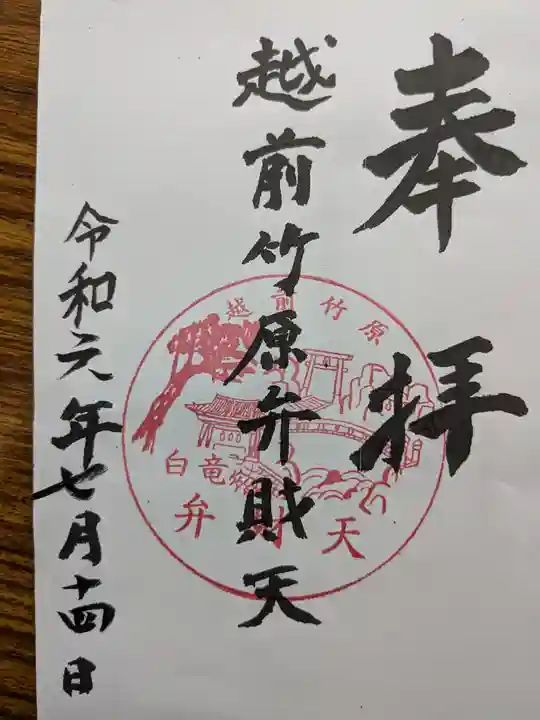 奉拝
越前竹原弁財天
越前竹原
白竜
弁財天
令和六年七月十四日